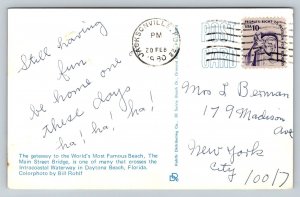 Still having
fun
be home one
these days
ha! ha! ha!
The gateway to the World's Most Famous Beach, The
Main Street Bridge, is one of many that crosses the
Intracoastal Waterway in Daytona Beach, Florida.
Colorphoto by Bill Rohlf
JACKSONVILLE
PM
20 FEB
1980
USA 10c
Mrs L Berman
179 Madison
Ave
New York
City
10017